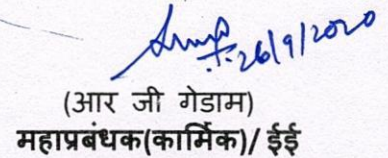 26/9/2020
(आर जी गेडाम)
महाप्रबंधक(कार्मिक)/ ईई